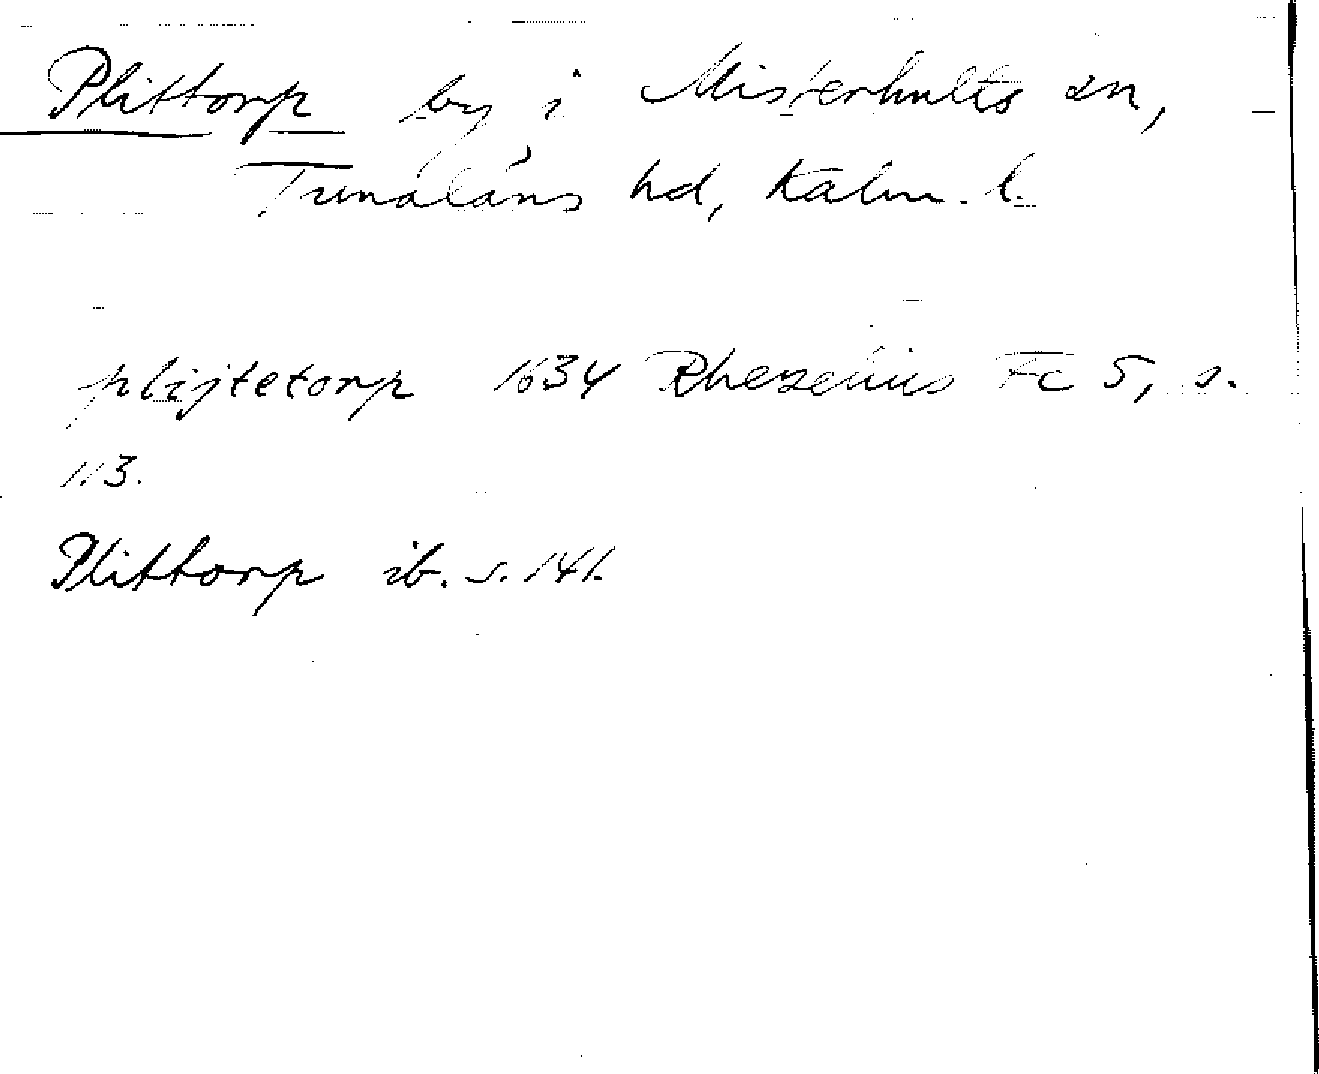 Plittorp by i Misterhults sn,
Tunaläns hd, Kalm. l.
plijtetorp 1634 Rhezelius Fc 5, s.
113.
Plittorp ib. s. 141.